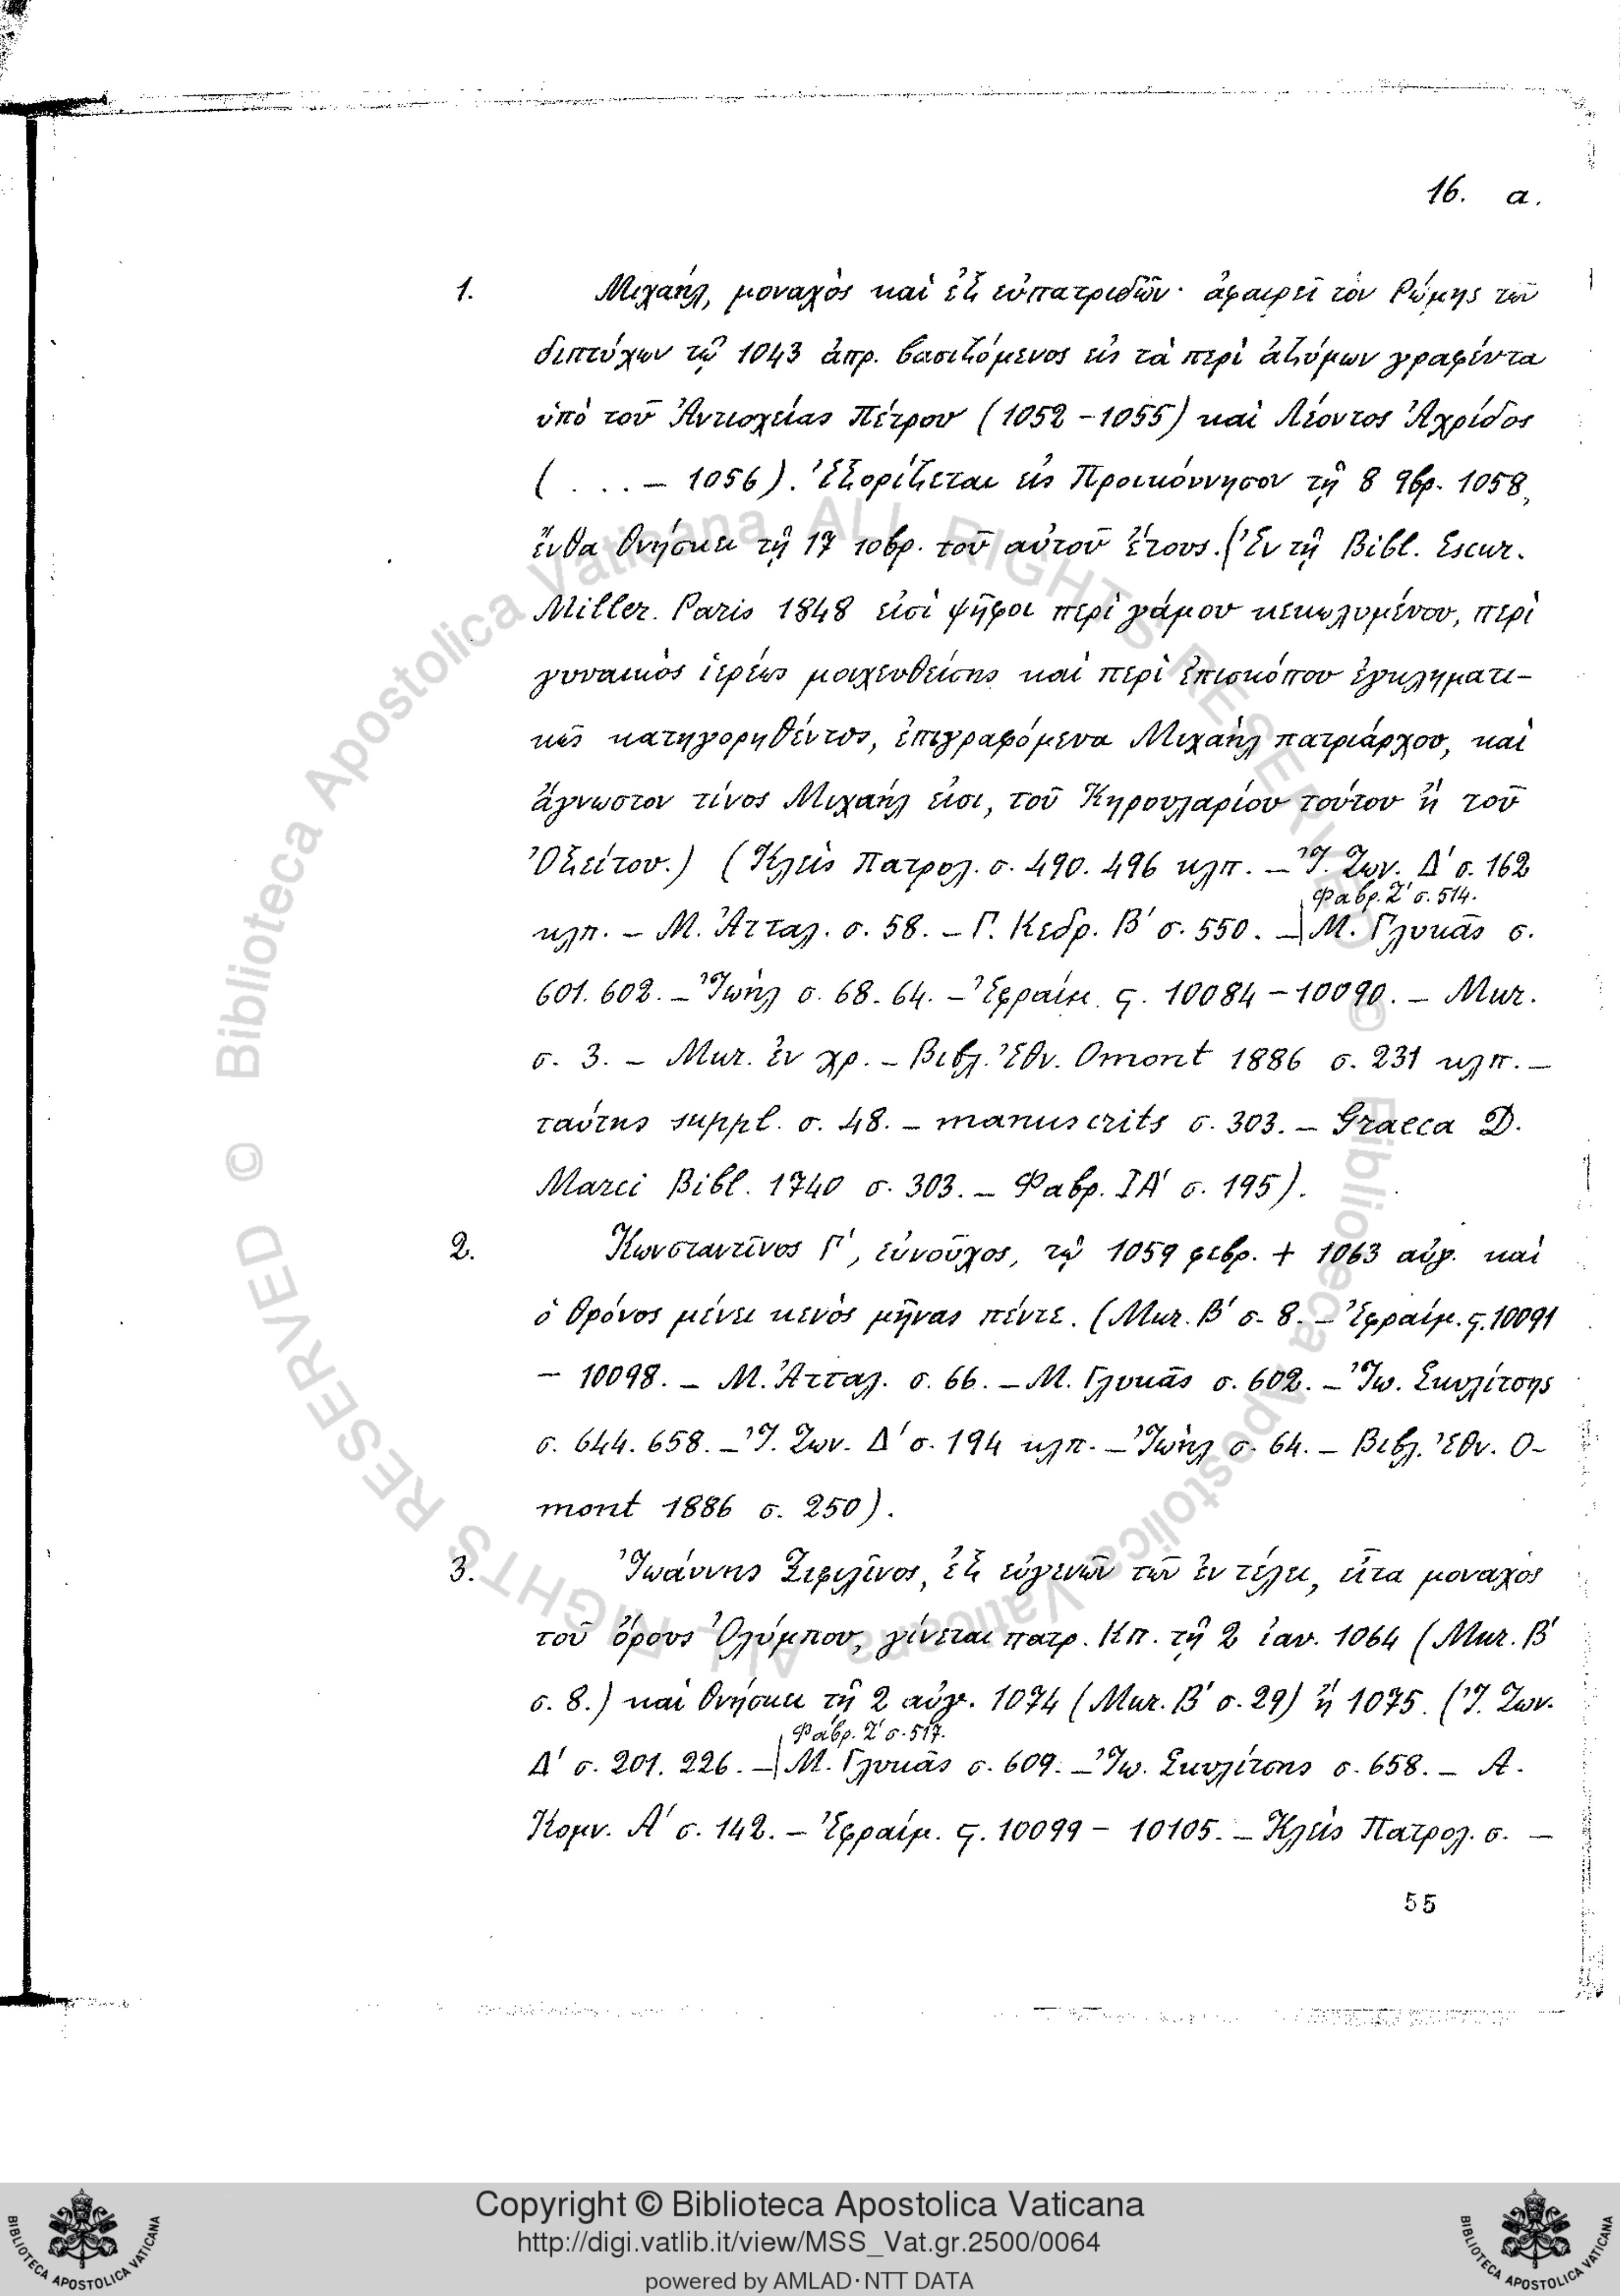 16. α.
1. Μιχαήλ, μοναχὸς καὶ ἐξ εὐπατριδῶν· ἀφαιρεῖ τὸν Ῥώμης τῶν
διπτύχων τῷ 1043 ἀπρ. βασιζόμενος εἰς τὰ περὶ ἀζύμων γραφέντα
ὑπὸ τοῦ Ἀντιοχείας Πέτρου (1052 – 1055) καὶ Λέοντος Ἀχρίδος
(. . . . – 1056). Ἐξορίζεται εἰς Προικόννησον τῇ 8 9βρ. 1058,
ἔνθα θνήσκει τῇ 17 10βρ. τοῦ αὐτοῦ ἔτους. (Ἐν τῇ Bibl. Escur.
Miller. Paris 1848 εἰσὶ ψῆφοι περὶ γάμου κεκωλυμένου, περὶ
γυναικὸς ἱερέως μοιχευθείσης καὶ περὶ ἐπισκόπου ἐγκληματι-
κῶς κατηγορηθέντος, ἐπιγραφόμενα Μιχαὴλ πατριάρχου, καὶ
ἄγνωστον τίνος Μιχαήλ εἰσι, τοῦ Κηρουλαρίου τούτου ἢ τοῦ
Ὀξείτου.) (Κλεὶς Πατρολ. σ. 490. 496 κλπ. – Ἰ. Ζων. Δ' σ. 162
Φαβρ. Ζ' σ. 514.
κλπ. – Μ. Ἀτταλ. σ. 58. – Γ. Κεδρ. Β' σ. 550. – Μ. Γλυκᾶς σ.
601. 602. – Ἰωὴλ σ. 63. 64. – Ἐφραίμ. ς. 10084 – 10090. – Mur.
σ. 3. – Mur. ἐν χρ. – Βιβλ. Ἐθν. Omont 1886 σ. 231 κλπ. –
ταύτης suppl. σ. 48. – manuscrits σ. 303. – Graeca D.
Marci Bibl. 1740 σ. 303. – Φαβρ. ΙΑ' σ. 195).
2. Κωνσταντῖνος Γ', εὐνοῦχος, τῷ 1059 φεβρ. + 1063 αὐγ. καὶ
ὁ θρόνος μένει κενὸς μῆνας πέντε. (Mur. Β' σ. 8. – Ἐφραίμ. ς. 10091
– 10098. – Μ. Ἀτταλ. σ. 66. – Μ. Γλυκᾶς σ. 602. – Ἰω. Σκυλίτσης
σ. 644. 658. – Ἰ. Ζων. Δ' σ. 194 κλπ. – Ἰωὴλ σ. 64. – Βιβλ. Ἐθν. O-
mont 1886 σ. 250).
3. Ἰωάννης Ξιφιλῖνος, ἐξ εὐγενῶν τῶν ἐν τέλει, εἶτα μοναχὸς
τοῦ ὄρους Ὀλύμπου, γίνεται πατρ. Κπ. τῇ 2 ἰαν. 1064 (Mur. Β'
σ. 8.) καὶ θνήσκει τῇ 2 αὐγ. 1074 (Mur. Β' σ. 29) ἢ 1075. (Ἰ. Ζων.
Φαβρ. Ζ' σ. 517.
Δ' σ. 201. 226. – Μ. Γλυκᾶς σ. 609. – Ἰω. Σκυλίτσης σ. 658. – Α.
Κομν. Α' σ. 142. – Ἐφραίμ. ς. 10099 – 10105. – Κλεὶς Πατρολ. σ. –
55
© Biblioteca Apostolica Vaticana ALL RIGHTS RESERVED
© Biblioteca Apostolica Vaticana ALL RIGHTS RESERVED
Copyright © Biblioteca Apostolica Vaticana
http://digi.vatlib.it/view/MSS_Vat.gr.2500/0064
powered by AMLAD·NTT DATA
BIBLIOTECA APOSTOLICA VATICANA
BIBLIOTECA APOSTOLICA VATICANA